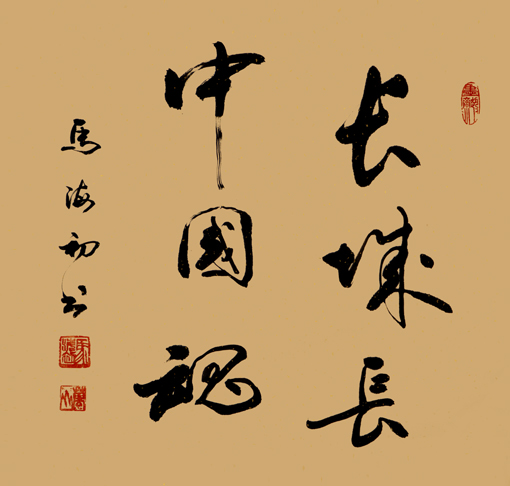 长城長
中國魂
馬海初书